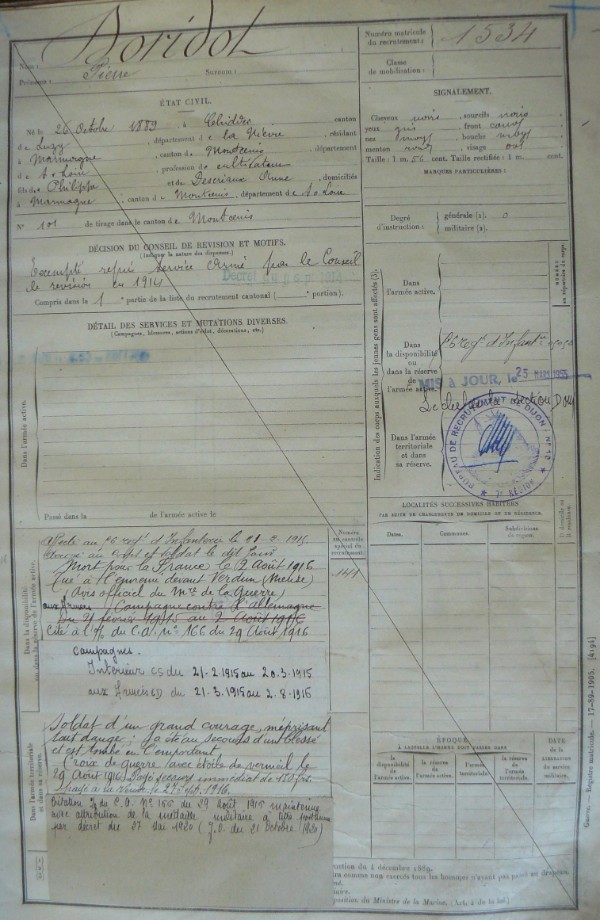 Nom : Doridot
Prénoms : Pierre Surnom :
Numéro matricule du recrutement : 1534
Classe de mobilisation :
ÉTAT CIVIL.
Né le 26 Octobre 1889 à Chiddes canton
de Luzy, département de la Nièvre, résidant
à Marmagne, canton de Montcenis, département
de S. & Loire, profession de cultivateur
fils de Philippe et de Descriaux Anne domiciliés
à Marmagne, canton de Montcenis, département de S. & Loire
N° 101 de tirage dans le canton de Montcenis
SIGNALEMENT.
Cheveux noirs sourcils noirs
yeux gris front couvt
nez moy bouche moy
menton rond visage ovs
Taille : 1 m. 56 cent. Taille rectifiée : 1 m. cent.
MARQUES PARTICULIÈRES :
Degré d'instruction : générale (2). 0
militaire (2).
DÉCISION DU CONSEIL DE REVISION ET MOTIFS.
(Indiquer la nature des dispenses)
Exempté repris service armé par le Conseil
de revision en 1914
Compris dans la 1 partie de la liste du recrutement cantonal ( portion).
DÉTAIL DES SERVICES ET MUTATIONS DIVERSES.
(Campagnes, blessures, actions d'éclat, décorations, etc.)
Dans l'armée active.
Passé dans la de l'armée active le
Indication des corps auxquels les jeunes gens sont affectés
NUMÉRO
Dans l'armée active.
Dans la disponibilité ou dans la réserve de l'armée active.
d'Infant
MIS à JOUR, le 25 MARS 1935
Le chef de la section
BUREAU DE RECRUTEMENT DE DIJON
Dans l'armée territoriale et dans sa réserve.
LOCALITÉS SUCCESSIVES HABITÉES
PAR SUITE DE CHANGEMENT DE DOMICILE OU DE RÉSIDENCE.
Dates. Communes. Subdivision de région.
Dans la disponibilité ou dans la réserve de l'armée active.
d'Infanterie le 21 2 1915
Arrivé au corps et soldat le dit jour
Mort pour la France le 2 Août 1916
tué à l'ennemi devant Verdun (Meuse)
(Avis officiel du Mre de la Guerre)
aux armées Campagne contre l'allemagne
Du 21 février 1915 au 2 Août 1916
Cité à l'O/ du C.A. N° 166 du 29 Août 1916
Campagnes.
Intérieur CS du 21-2-1915 au 20-3-1915
aux Armées CD du 21-3-1915 au 2-8-1916
Dans l'armée territoriale et dans sa réserve.
Soldat d'un grand courage, méprisant
tout danger ; a été au secours d'un blessé
et est tombé en l'emportant.
Croix de guerre avec étoile de vermeil le
29 Août 1916. Payé secours immédiat de 150 frs
1916.
Citation
avec attribution de la médaille militaire à titre posthume
par décret du 27 Mai 1920 (J.O. du 21 Octobre 1920)
ÉPOQUE
À LAQUELLE L'HOMME DOIT PASSER DANS
la disponibilité de l'armée active. la réserve de l'armée active. l'armée territoriale. la réserve de l'armée territoriale.
DATE de la LIBÉRATION du service militaire.
Registre matricule. — 17-89-1905. [4191]